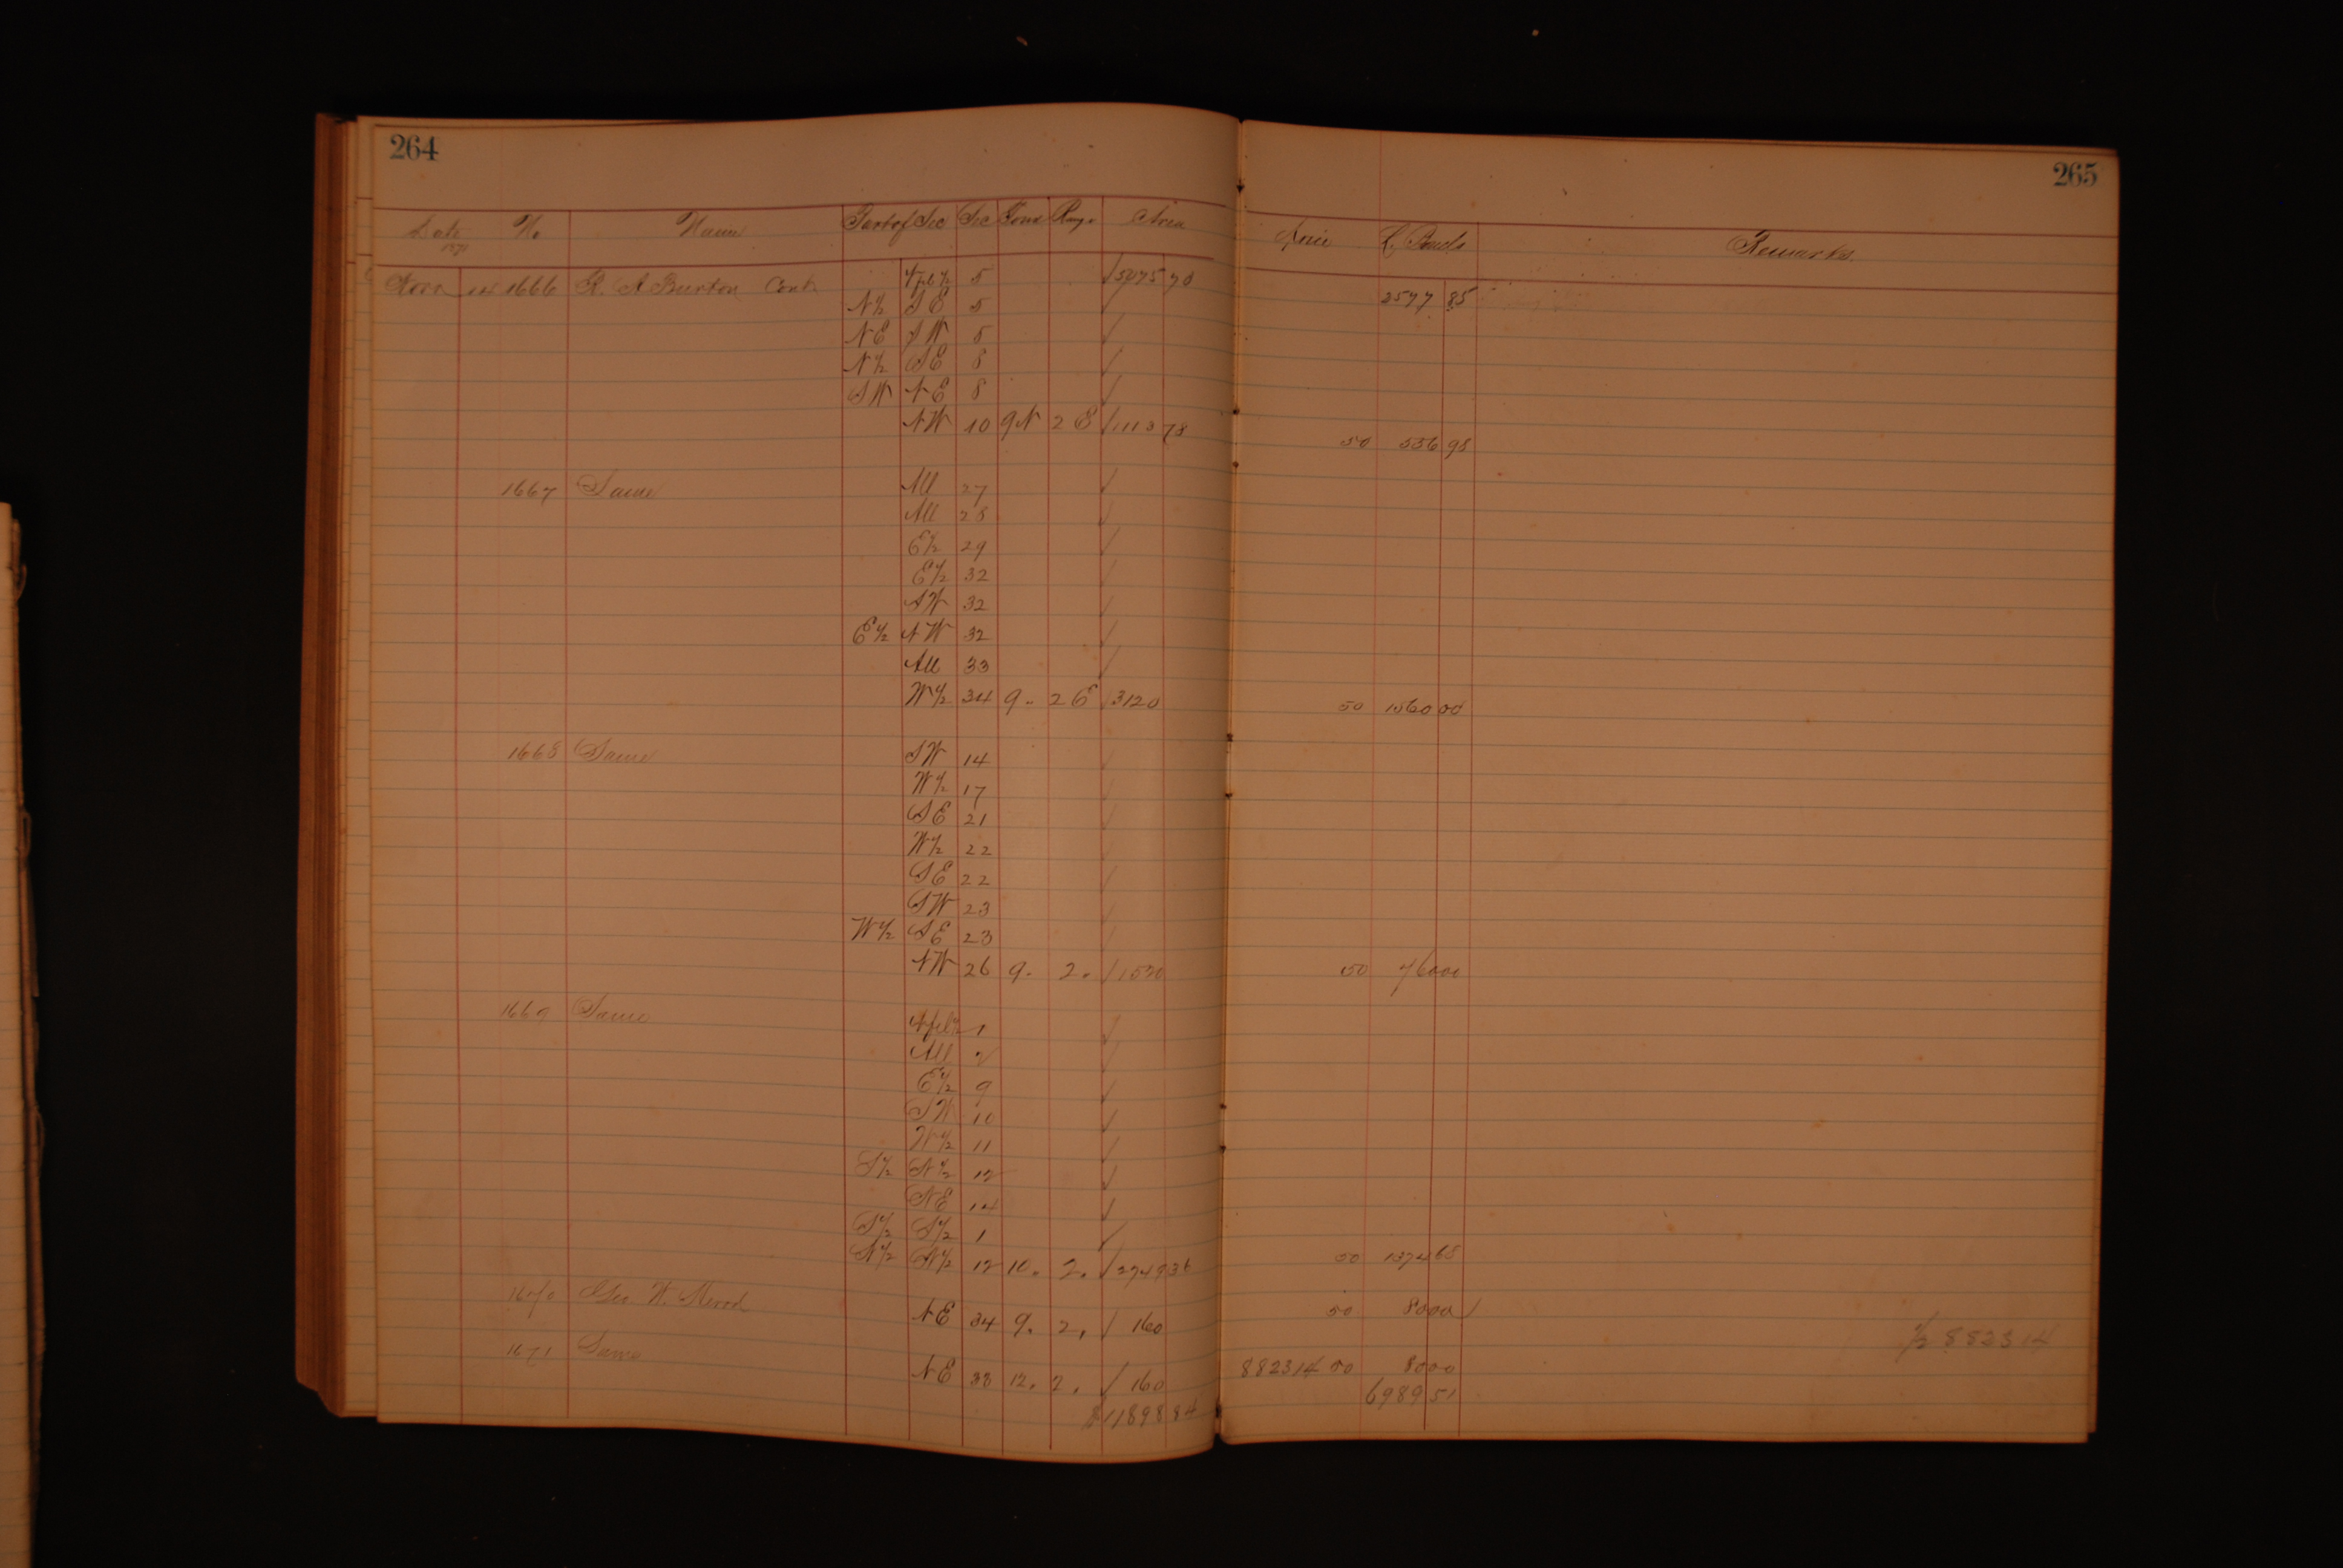 264
265
Date No Name Part of Sec Sec Town Range Area Price L. Bonds Remarks
Nov 14 1666 R. A Burton Cont. 5 5075 70 2577 85
N½ SE 5
NE SW 5
N½ SE 8
SW NE 8
NW 10 9N 2E 1113 78 50 556 98
1667 Same All 27
All 28
E½ 29
E½ 32
SW 32
E½ NW 32
All 33
W½ 34 9" 2E 3120 50 1560 00
1668 Same SW 14
W½ 17
SE 21
W½ 22
SE 22
SW 23
W½ SE 23
NW 26 9" 2" 1520 50 760 00
1669 Same 1
All 2
E½ 9
SW 10
W½ 11
S½ N½ 12
NE 14
S½ S½ 1
N½ N½ 12 10" 2" 2749 36 50 1374 68
1670 Geo. W. NE 34 9" 2" 160 50 80 00
½ 8823 14
1671 Same NE 33 12" 2" 160 8823 14 50 80 00
11898 84 6989 51